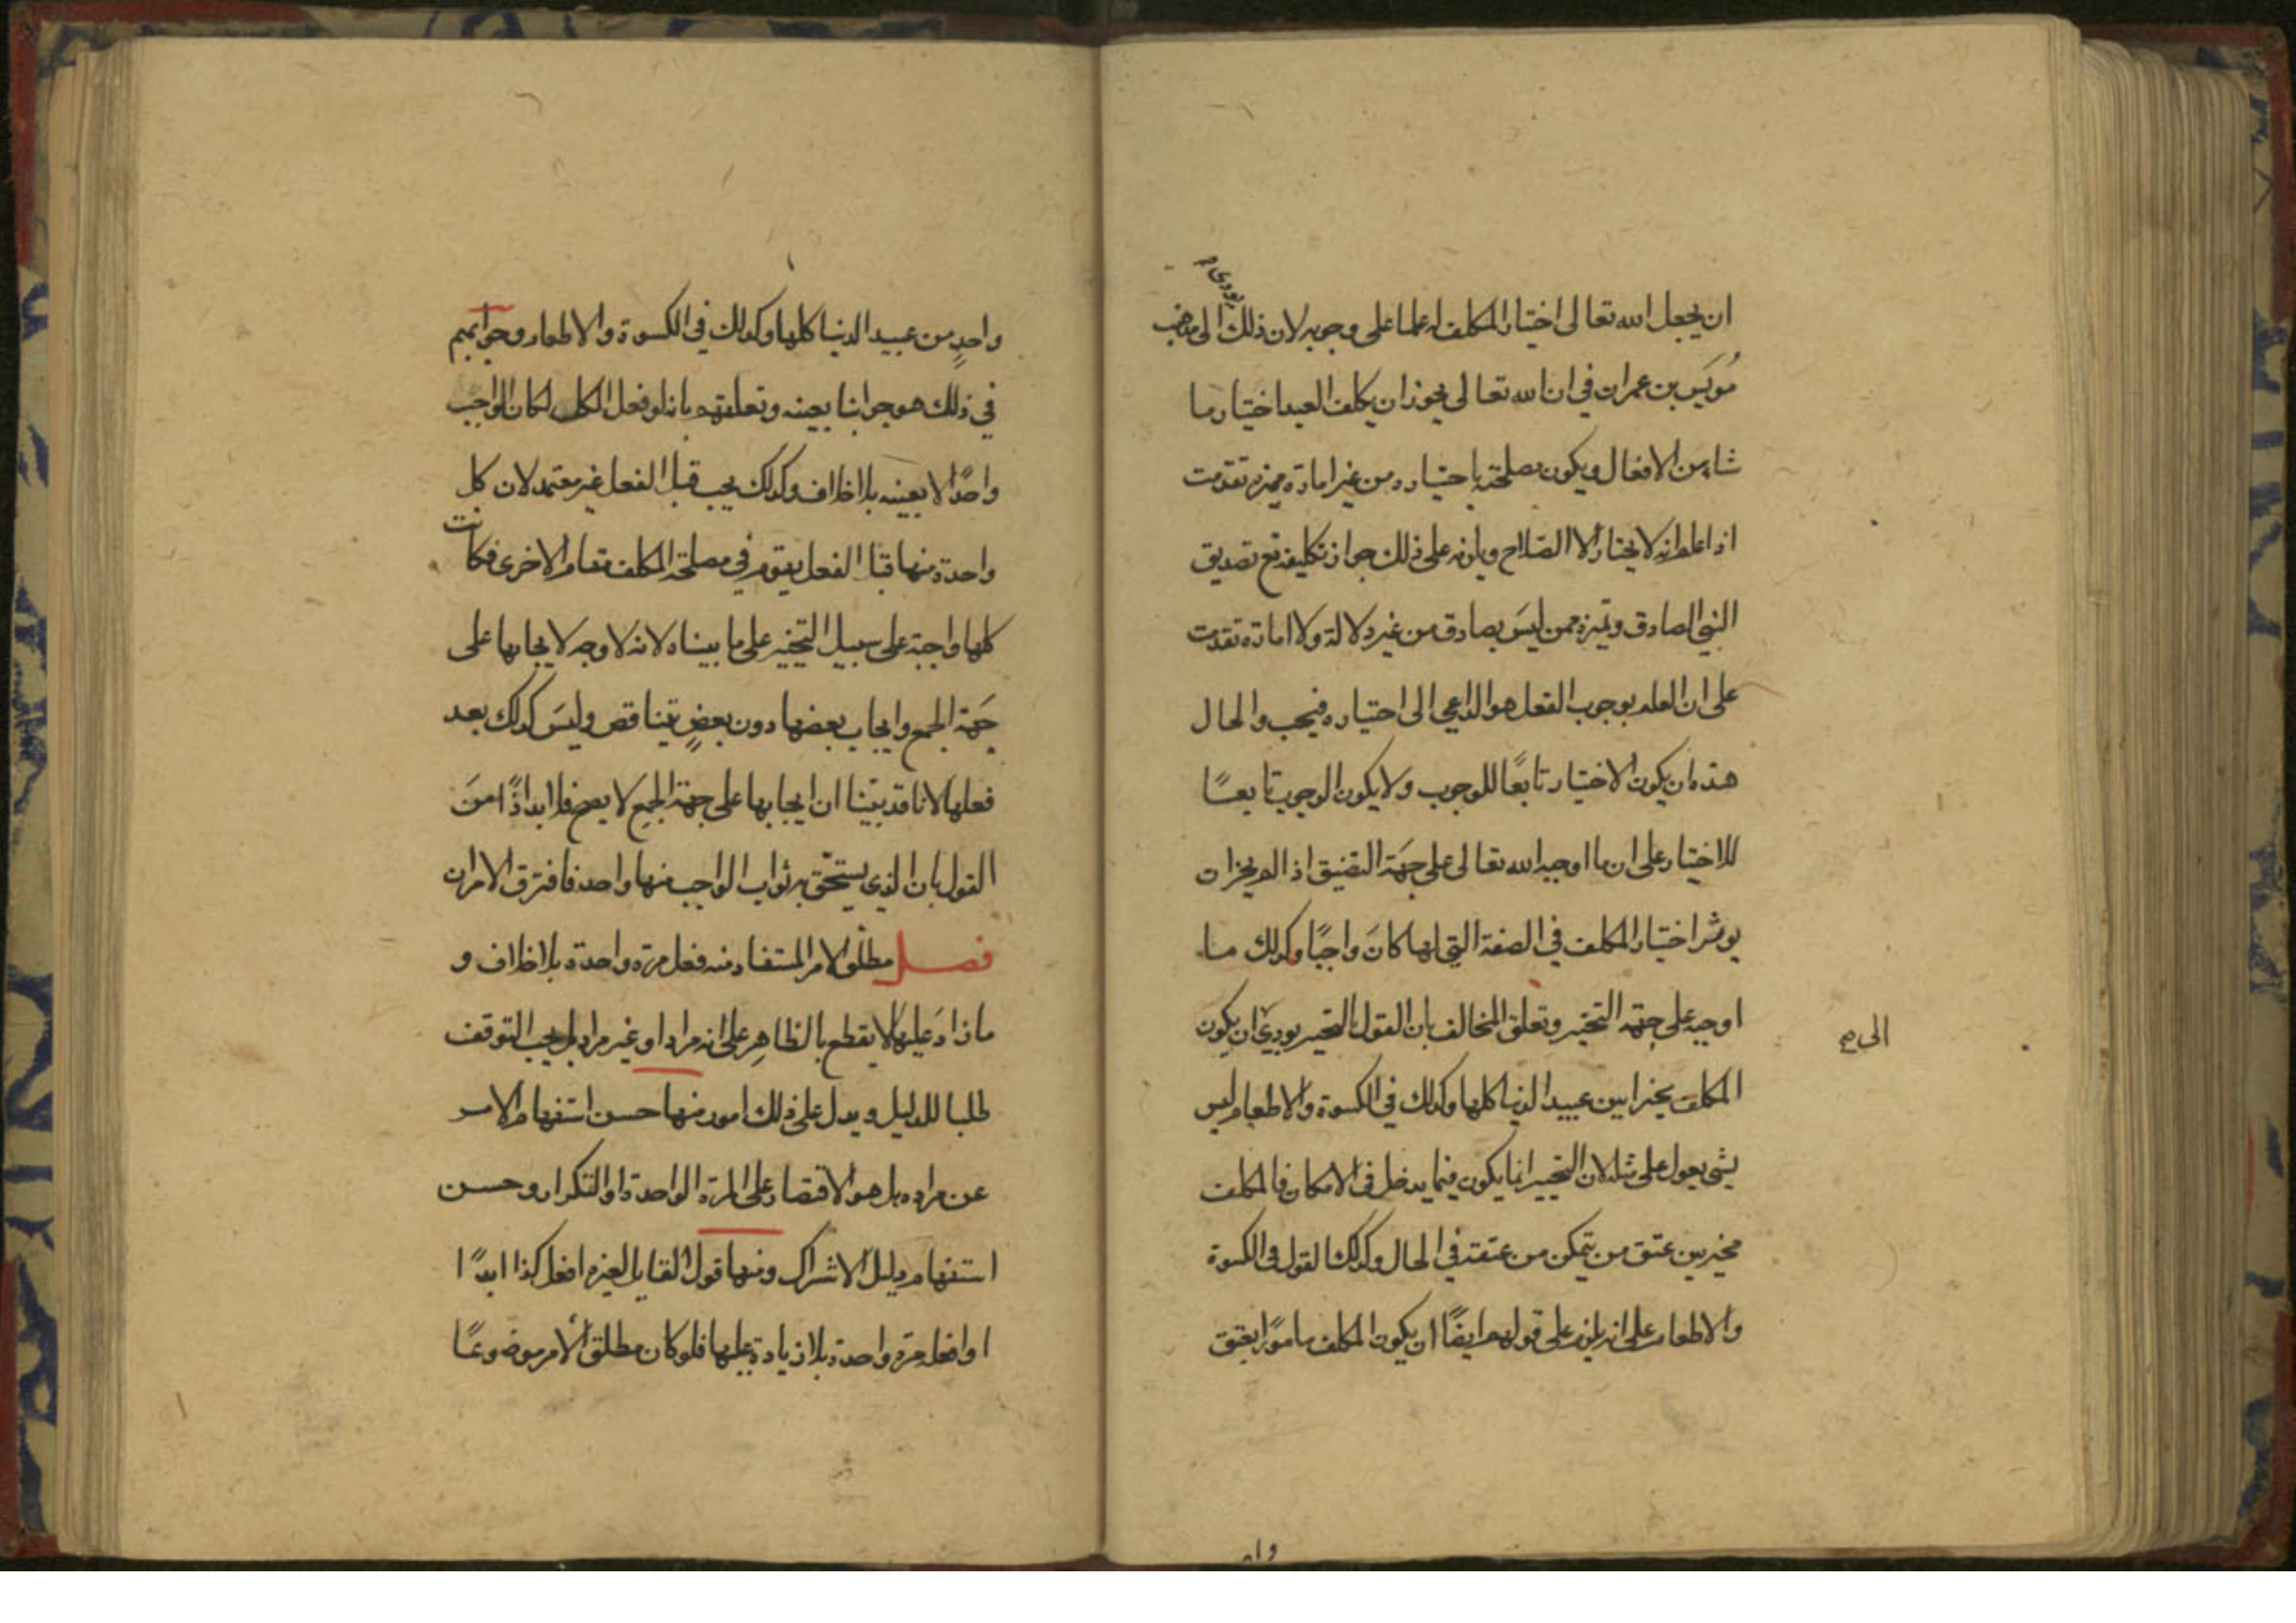 يودي م
ان يجعل الله تعالى اختيار المكلف له علما على وجوبه لان ذلك الى مذهب
مُويَس بن عمران في ان الله تعالى يجوز ان يكلف العبد اختيار ما
شاء من الافعال ويكون مصلحته باختياره من غير امارة مميزه تقدمت
اذا علم انه لا يختار الا الصلاح ويلزمه على ذلك جواز تكليفه مع تصديق
النبي الصادق وتميزه ممن ليسَ بصادق من غير دلالة ولا امارة تقدمت
على ان العلم بوجوب الفعل هو الداعي الى اختياره فيجب والحال
هذه ان يكون الاختيار تابعًا للوجوب ولا يكون الوجوب تابعًا
للاختيار على ان ما اوجبه الله تعالى على جهَة التضيق اذا لم يجز ان
يوثر اختيار المكلف في الصفة التي لها كانَ واجبًا وكذلك ما
اوجبه على جهة التخير وتعلق المخالف بان القول بالتخير يودي ان يكون
الى صح
المكلف مخيرا بين عبيد الدنيا كلها وكذلك في الكسوة والاطعام ليس
بشي يعول على مثله لان التخيير انما يكون فيما يدخل في الامكان فالمكلف
مخير بين عتق من يتمكن من عتقه في الحال وكذلك القول في الكسوة
والاطعام على انه يلزم على قولهم ايضًا ان يكون المكلف مامورًا بعتق
واحدٍ من عبيد الدنيا كلها وكذلك في الكسوة والاطعام وجوابهم
في ذلك هو جوابنا بعينه وتعلقهم بانه لو فعل الكل لكان الواجب
واحدًا لا بعينه بلا خلاف وكذلك يجب قبل الفعل غير معتمد لان كل
واحدة منها قبل الفعل يقوم في مصلحة المكلف مقام الاخرى فكانت
كلها واجبة على سبيل التخير على ما بيناه لانه لا وجه لايجابها على
جهَة الجمع وايجاب بعضها دون بعضٍ تيناقض وليسَ كذلك بعد
فعلها لانا قد بيّنا ان ايجابها على جهة الجمع لا يصح فلا بد اذًا منَ
القول بان الذي يستحق به ثواب الواجب منها واحد فافترق الامران
فصل مطلق الامر المستفاد منه فعل مرة واحدة بلا خلاف و
ما زادَ عليها لا يقطع بالظاهِر على انه مراد او غير مراد بل يجب التوقف
طلبا للدليل ويدل على ذلك امور منها حسن استفهام الامر
عن مراده بل هو الاقتصار على المرة الواحدة او التكرار وحسن
استفهام دليل الاشراك ومنها قول القايل لغيره افعل كذا ابدًا
او افعل مرة واحدة بلا زيادة عليها فلو كان مطلق الأمر موضوعًا